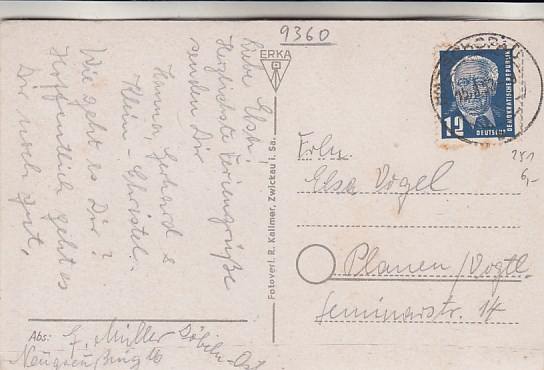 9360
Liebe Elsb.!
Herzlichste Feriengrüße
senden Dir
Hanna, Gerhard &
Klein-Christel.
Wie geht es Dir?
Hoffentlich geht es
Dir noch gut,
Abs: G. Müller Döbeln-Ost
16
ERKA
Fotoverl. R. Kallmer, Zwickau i. Sa.
12
DEUTSCHE
DEMOKRATISCHE REPUBLIK
251
6,-
Frln.
Elsa Vogel
Plauen/Vogtl.
Seminarstr. 14